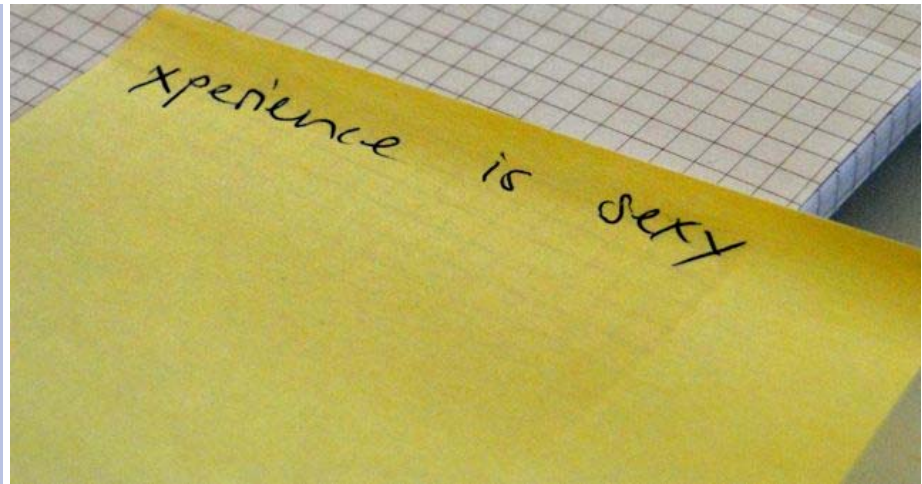 xperience is sexy